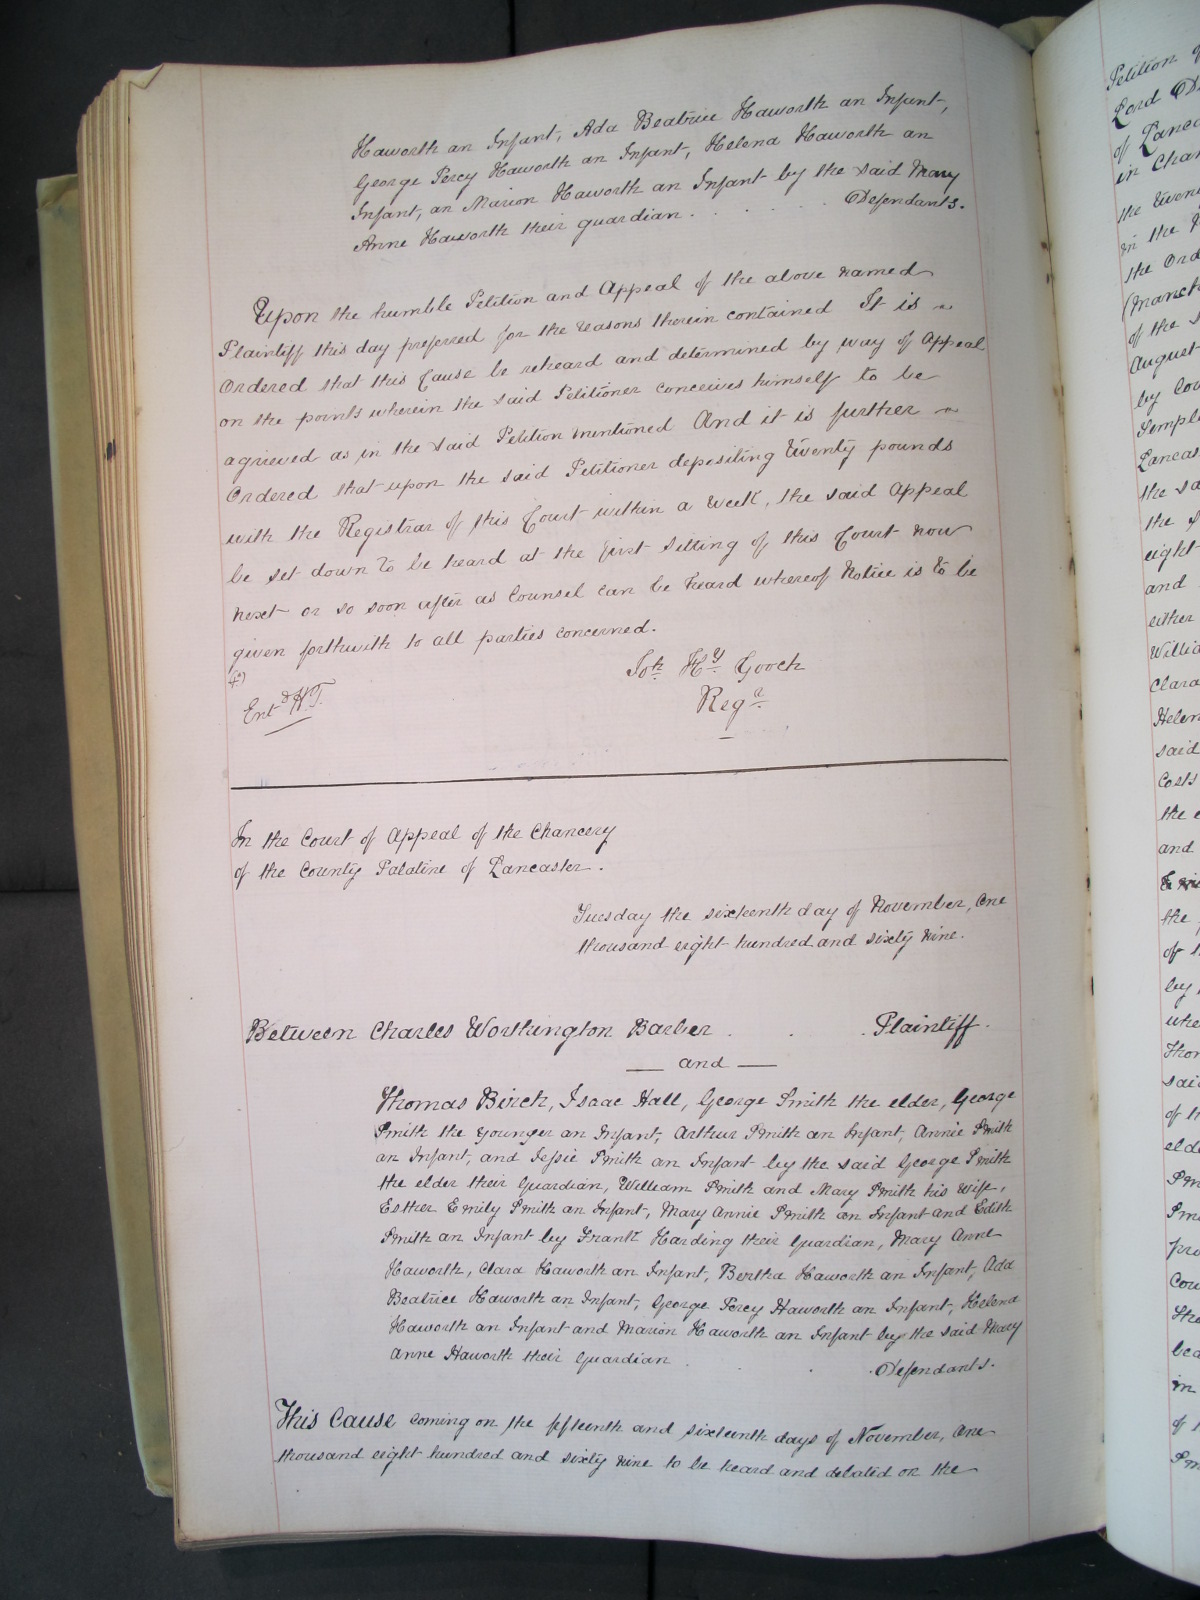 Haworth an Infant, Ada Beatrice Haworth an Infant,
George Percy Haworth an Infant, Helena Haworth an
Infant, an Marion Haworth an Infant by the said Mary
Anne Haworth their guardian . . . . . Defendants.
Upon the humble Petition and Appeal of the above named
Plaintiff this day preferred for the reasons therein contained It is
Ordered that this Cause be reheard and determined by way of Appeal
on the points wherein the said Petitioner conceives himself to be
agrieved as in the said Petition mentioned And it is further
Ordered that upon the said Petitioner depositing Twenty pounds
with the Registrar of this Court within a Week, the said Appeal
be set down to be heard at the first sitting of this Court now
next or so soon after as Counsel can be heard whereof Notice is to be
given forthwith to all parties concerned.
Jos. Hy. Gooch
Regr.
Entd. H.T.
In the Court of Appeal of the Chancery
of the County Palatine of Lancaster.
Tuesday the sixteenth day of November, One
thousand eight hundred and sixty nine.
Between Charles Worthington Barber . . . Plaintiff.
— and —
Thomas Birch, Isaac Hall, George Smith the elder, George
Smith the younger an Infant, Arthur Smith an Infant, Annie Smith
an Infant, and Jessie Smith an Infant by the said George Smith
the elder their Guardian, William Smith and Mary Smith his Wife,
Esther Emily Smith an Infant, Mary Annie Smith an Infant and Edith
Smith an Infant by Frank Harding their Guardian, Mary Anne
Haworth, Clara Haworth an Infant, Bertha Haworth an Infant, Ada
Beatrice Haworth an Infant, George Percy Haworth an Infant, Helena
Haworth an Infant and Marion Haworth an Infant by the said Mary
Anne Haworth their Guardian . . . Defendants.
This Cause coming on the fifteenth and sixteenth days of November, One
thousand eight hundred and sixty nine to be heard and debated on the
Petition
Lord
in
the
in the
the Ord
of the
August
by
Lancas
the
the
eight
and
either
Willia
Clara
Helen
said
Costs
the
and
the
of
by
said
of
in
of